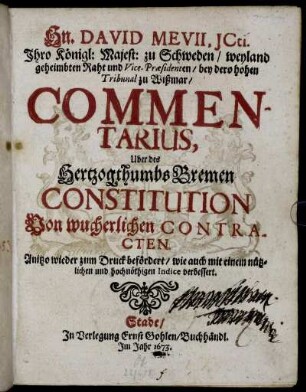 Hn. DAVID MEVII, JCti.
Ihro Königl: Majest: zu Schweden / weyland
geheimbten Raht und Vice-Præsidenten / bey dero hohen
Tribunal zu Wißmar /
COMMEN-
TARIUS,
Uber des
Hertzogthumbs Bremen
CONSTITUTION
Von wucherlichen CONTRA-
CTEN.
Anitzo wieder zum Druck befördert / wie auch mit einem nütz-
lichen und hochnöthigen Indice verbessert.
Stade /
In Verlegung Ernst Gohlen / Buchhändl.
Im Jahr 1673.